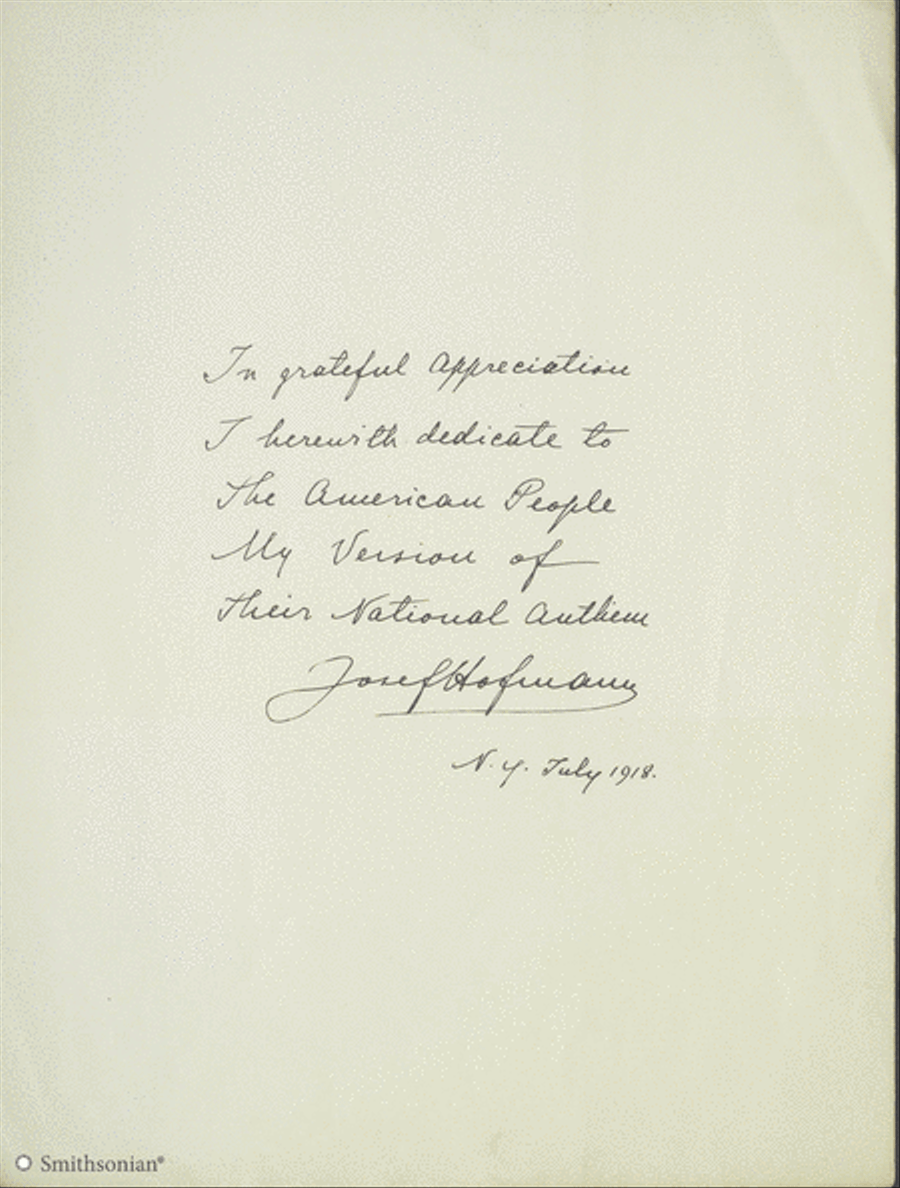 In grateful Appreciation
I herewith dedicate to
The American People
My Version of
Their National Anthem
Josef Hofmann
N.Y. July 1918.
Smithsonian®